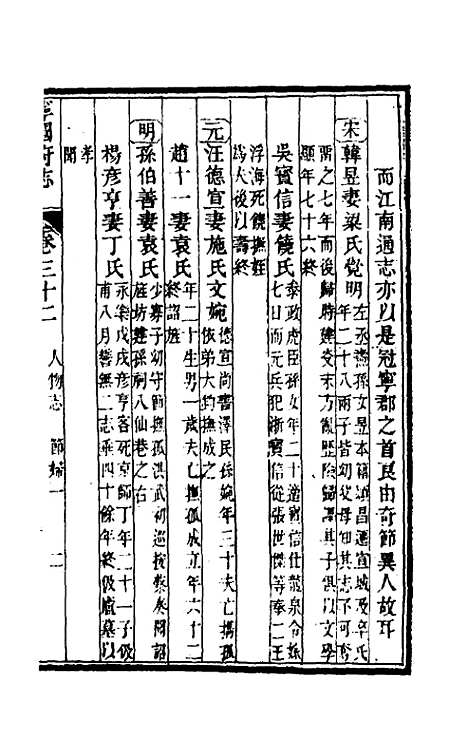 而江南通志亦以是冠寧郡之首良由奇節異人故耳
宋 韓昱妻梁氏覺明
左丞燾孫女昱本籍潁昌遷宣城及卒氏
年二十八兩子皆幼父母知其志不可奪
需之七年而後歸時建炎末方
歸其子俱以文學
顯年七十六終
吳實信妻饒氏
參政虎臣孫女年二十適實信仕龍泉令
七日而元兵犯浙實信從張世傑等奉二王
浮海死饒撫姪
為大後以壽終
元 汪德宣妻施氏文婉
德宣尚書澤民孫婉年三十夫亡攜孤
依弟大鈞撫成之
趙十一妻袁氏
年二十生男一歲夫亡撫孤成立年六十二
終詔旌
明 孫伯善妻袁氏
少寡子幼守節撫孤洪武初巡按蔡奏聞詔
旌坊建孫祠八仙巷之右
楊彥亨妻丁氏
永樂戊戌彥亨客死京師丁年二十一子伋
甫八月誓無二志乘四十餘年終伋廬墓以
孝
聞
寧國府志
卷三十二 人物志 節婦一 二